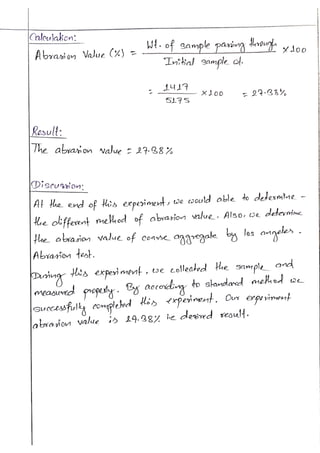 Calculation:
Abrasion Value (%) = Wt. of sample passing through x100
Initial sample of.
= 1417 x100 = 27.38%
5175
Result:
The abrasion value = 27.38%
Discussion:
At the end of this experiment, we would able to determine -
the different method of abrasion value. Also, we determine
the abrasion value of coarse aggregate by los angeles.
Abrasion test.
During this experiment, we collected the sample and
measured property. By according to standard method we
successfully completed this experiment. Our experiment
abrasion value is 27.38% be desired result.